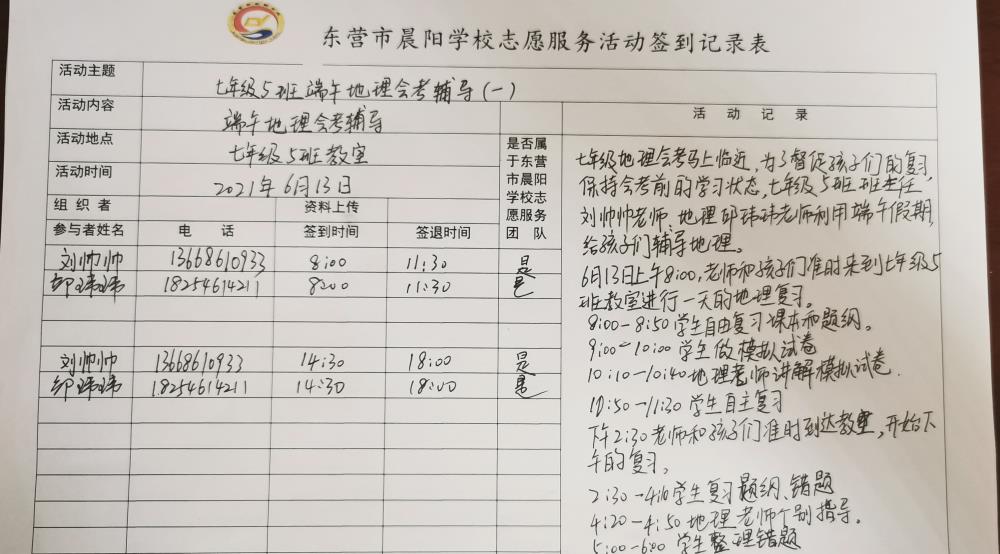 东营市晨阳学校志愿服务活动签到记录表
活动主题 七年级5班端午地理会考辅导(一)
活动内容 端午地理会考辅导
活动地点 七年级5班教室
活动时间 2021年6月13日
组织者 资料上传
参与者姓名 电话 签到时间 签退时间
是否属
于东营
市晨阳
学校志
愿服务
团队
刘帅帅 13668610933 8:00 11:30 是
邹玮玮 18254614211 8:00 11:30 是
刘帅帅 13668610933 14:30 18:00 是
邹玮玮 18254614211 14:30 18:00 是
活动记录
七年级地理会考马上临近,为了督促孩子们的复习,
保持会考前的学习状态,七年级5班班主任
刘帅帅老师,地理邹玮玮老师利用端午假期,
给孩子们辅导地理。
6月13日上午8:00,老师和孩子们准时来到七年级5
班教室进行一天的地理复习。
8:00-8:50学生自由复习课本和题纲。
9:00-10:00学生做模拟试卷
10:10-10:40地理老师讲解模拟试卷.
10:50-11:30学生自主复习
下午2:30老师和孩子们准时到达教室,开始下
午的复习。
2:30-4:10学生复习题纲、错题
4:20-4:50地理老师个别指导。
5:00-6:00学生整理错题